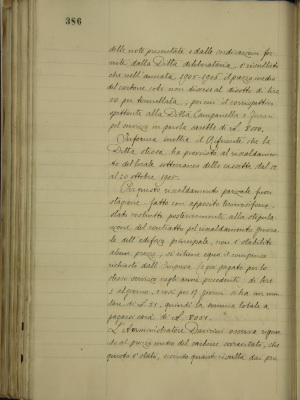 386
delle note presentate e dalle indicazioni for-
nite dalla Ditta deliberataria, è risultato
che nell'annata 1905-1906 il prezzo medio
del carbone coke non discese al disotto di lire
per tonnellata, perciò il corrispettivo
spettante alla Ditta Campanella e
pel servizio in parola sarebbe di L. 8000.
Informa inoltre il Referente che la
Ditta stessa, ha provvisto al riscaldamen-
to del locale sotterraneo delle cassette, dal 10
al 20 ottobre 1905.
Per questo riscaldamento parziale fuori
stagione fatto con apposito termosifone,
stato costruito posteriormente alla stipula-
zione del contratto pel riscaldamento genera-
le dell'edificio principale, non è stabilito
alcun prezzo, si ritiene equo il compenso
richiesto dall'Impresa e già pagato per lo
stesso servizio negli anni precedenti di lire
al giorno, e così per 17 giorni si ha un im-
porto di L. 51. quindi la somma totale a
pagarsi sarà di L. 8051.
L'Amministratore osserva riguar-
do al prezzo medio del carbone accertato, che
questo è stato, secondo quanto risulta dai pre-